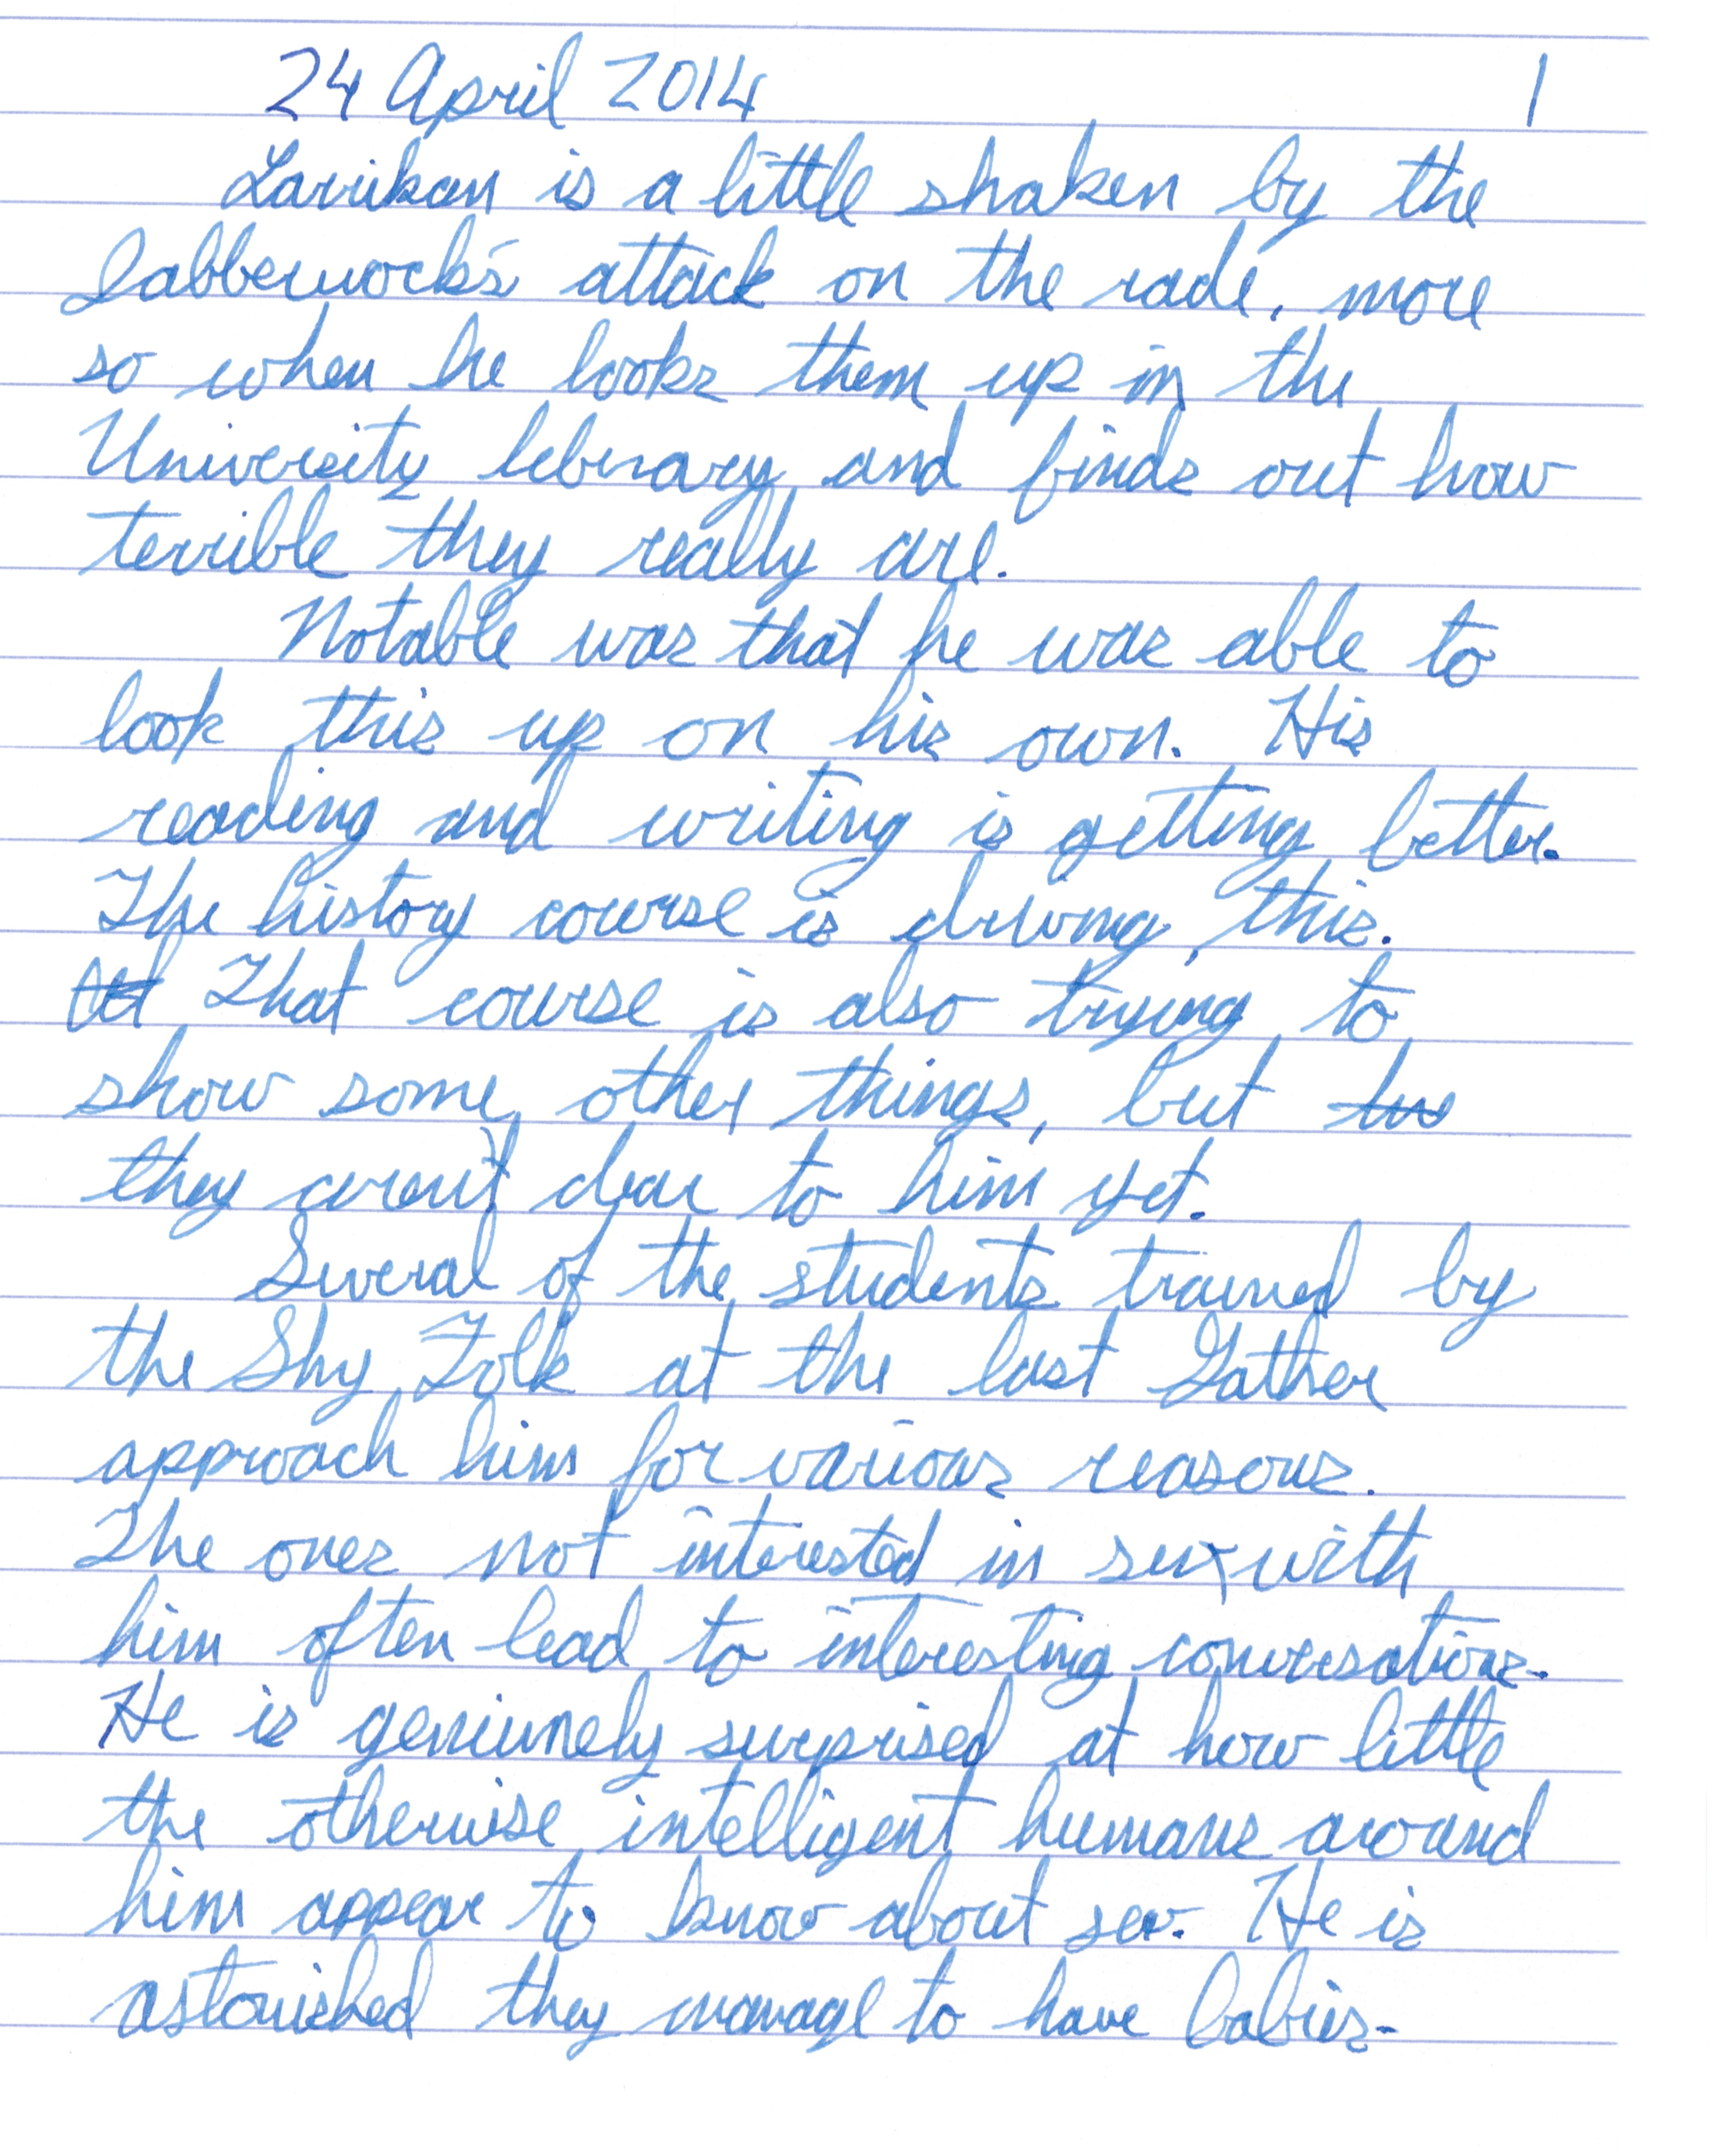 24 April 2014 1
Larrikan is a little shaken by the
Jabberwock's attack on the rade, more
so when he looks them up in the
University library and finds out how
terrible they really are.
Notable was that he was able to
look this up on his own. His
reading and writing is getting better.
The history course is driving this.
That course is also trying to
show some other things, but
they aren't clear to him yet.
Several of the students trained by
the Shy Folk at the last Gather
approach him for various reasons.
The ones not interested in sex with
him often lead to interesting conversations.
He is geniunely surprised at how little
the otherwise intelligent humans around
him appear to know about sex. He is
astonished they manage to have babies.